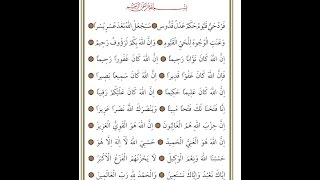 بِسْمِ اللهِ الرَّحْمٰنِ الرَّحِيمِ
فَرْدٌ حَيٌّ قَيُّومٌ حَكَمٌ عَدْلٌ قُدُّوسٌ سَيَجْعَلُ اللهُ بَعْدَ عُسْرٍ يُسْرًا
وَعَنَتِ الْوُجُوهُ لِلْحَيِّ الْقَيُّومِ وَإِنَّ اللهَ بِكُمْ لَرَؤُوفٌ رَحِيمٌ
إِنَّ اللهَ كَانَ تَوَّابًا رَحِيمًا إِنَّ اللهَ كَانَ غَفُورًا رَحِيمًا
فَإِنَّ اللهَ كَانَ عَفُوًّا قَدِيرًا إِنَّ اللهَ كَانَ سَمِيعًا بَصِيرًا
إِنَّ اللهَ كَانَ عَلِيمًا حَكِيمًا إِنَّ اللهَ كَانَ عَلَيْكُمْ رَقِيبًا
إِنَّا فَتَحْنَا لَكَ فَتْحًا مُبِينًا وَيَنْصُرَكَ اللهُ نَصْرًا عَزِيزًا
إِنَّ حِزْبَ اللهِ هُمُ الْغَالِبُونَ إِنَّ اللهَ هُوَ الْقَوِيُّ الْعَزِيزُ
إِنَّ اللهَ هُوَ الْغَنِيُّ الْحَمِيدُ حَسْبِيَ اللهُ لَا إِلٰهَ إِلَّا هُوَ
حَسْبُنَا اللهُ وَنِعْمَ الْوَكِيلُ لَا يَحْزُنُهُمُ الْفَزَعُ الْأَكْبَرُ
إِيَّاكَ نَعْبُدُ وَإِيَّاكَ نَسْتَعِينُ وَالْحَمْدُ لِلّٰهِ رَبِّ الْعَالَمِينَ